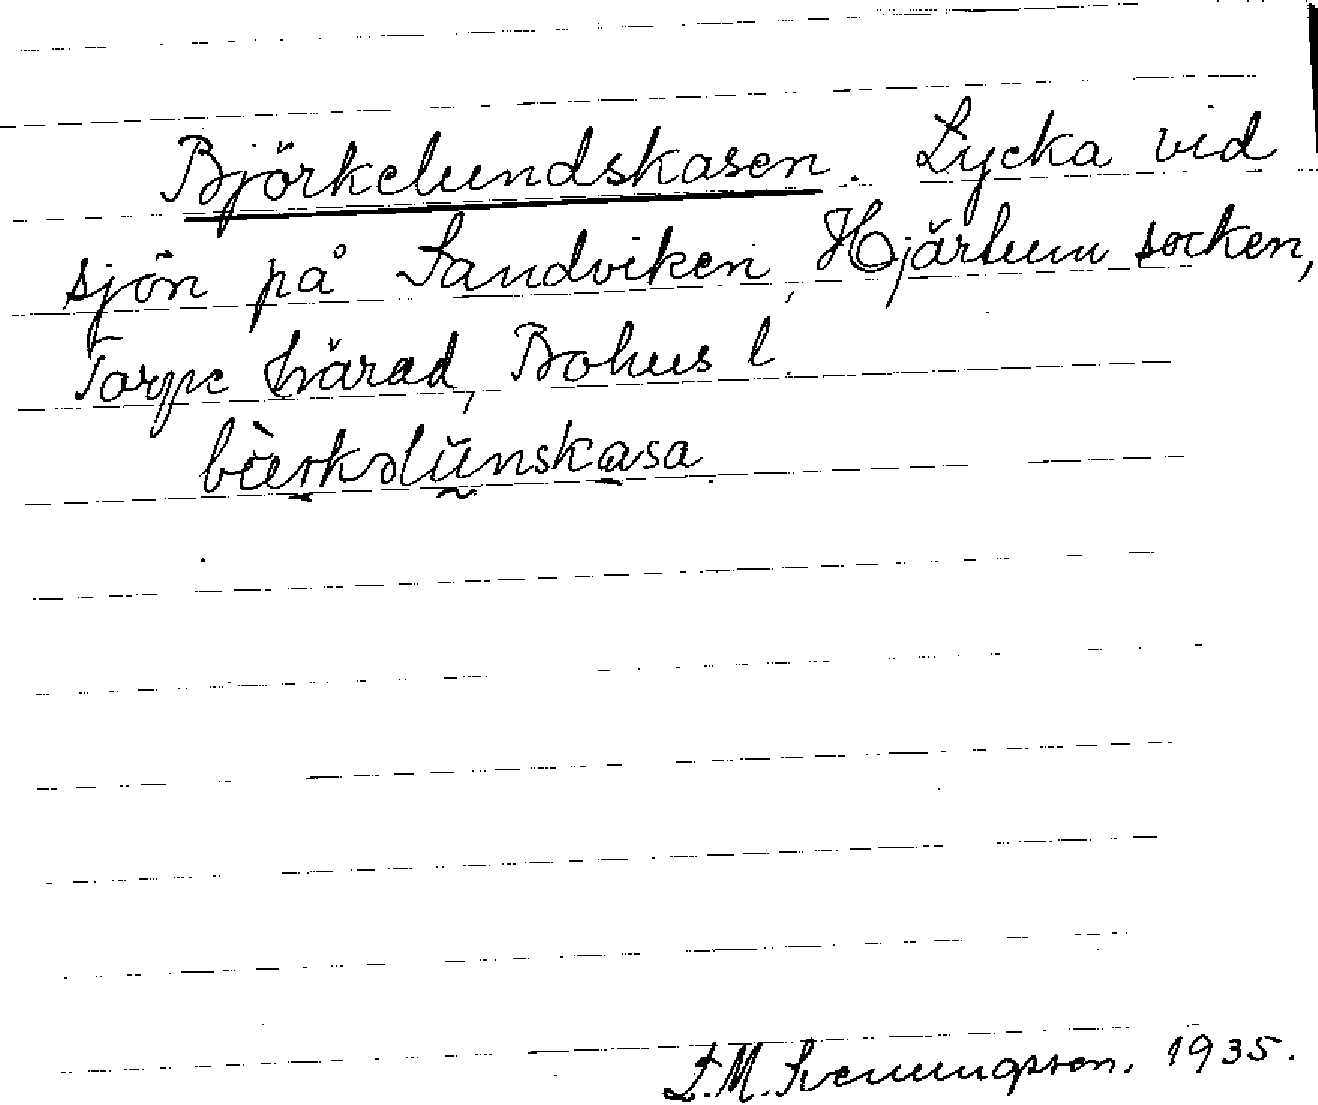 Björkelundskasen. Lycka vid
sjön på Sandviken, Hjärtum socken,
Torpe härad, Bohus l.
bìerkəlünskasa
L.M. Svenungsson. 1935.